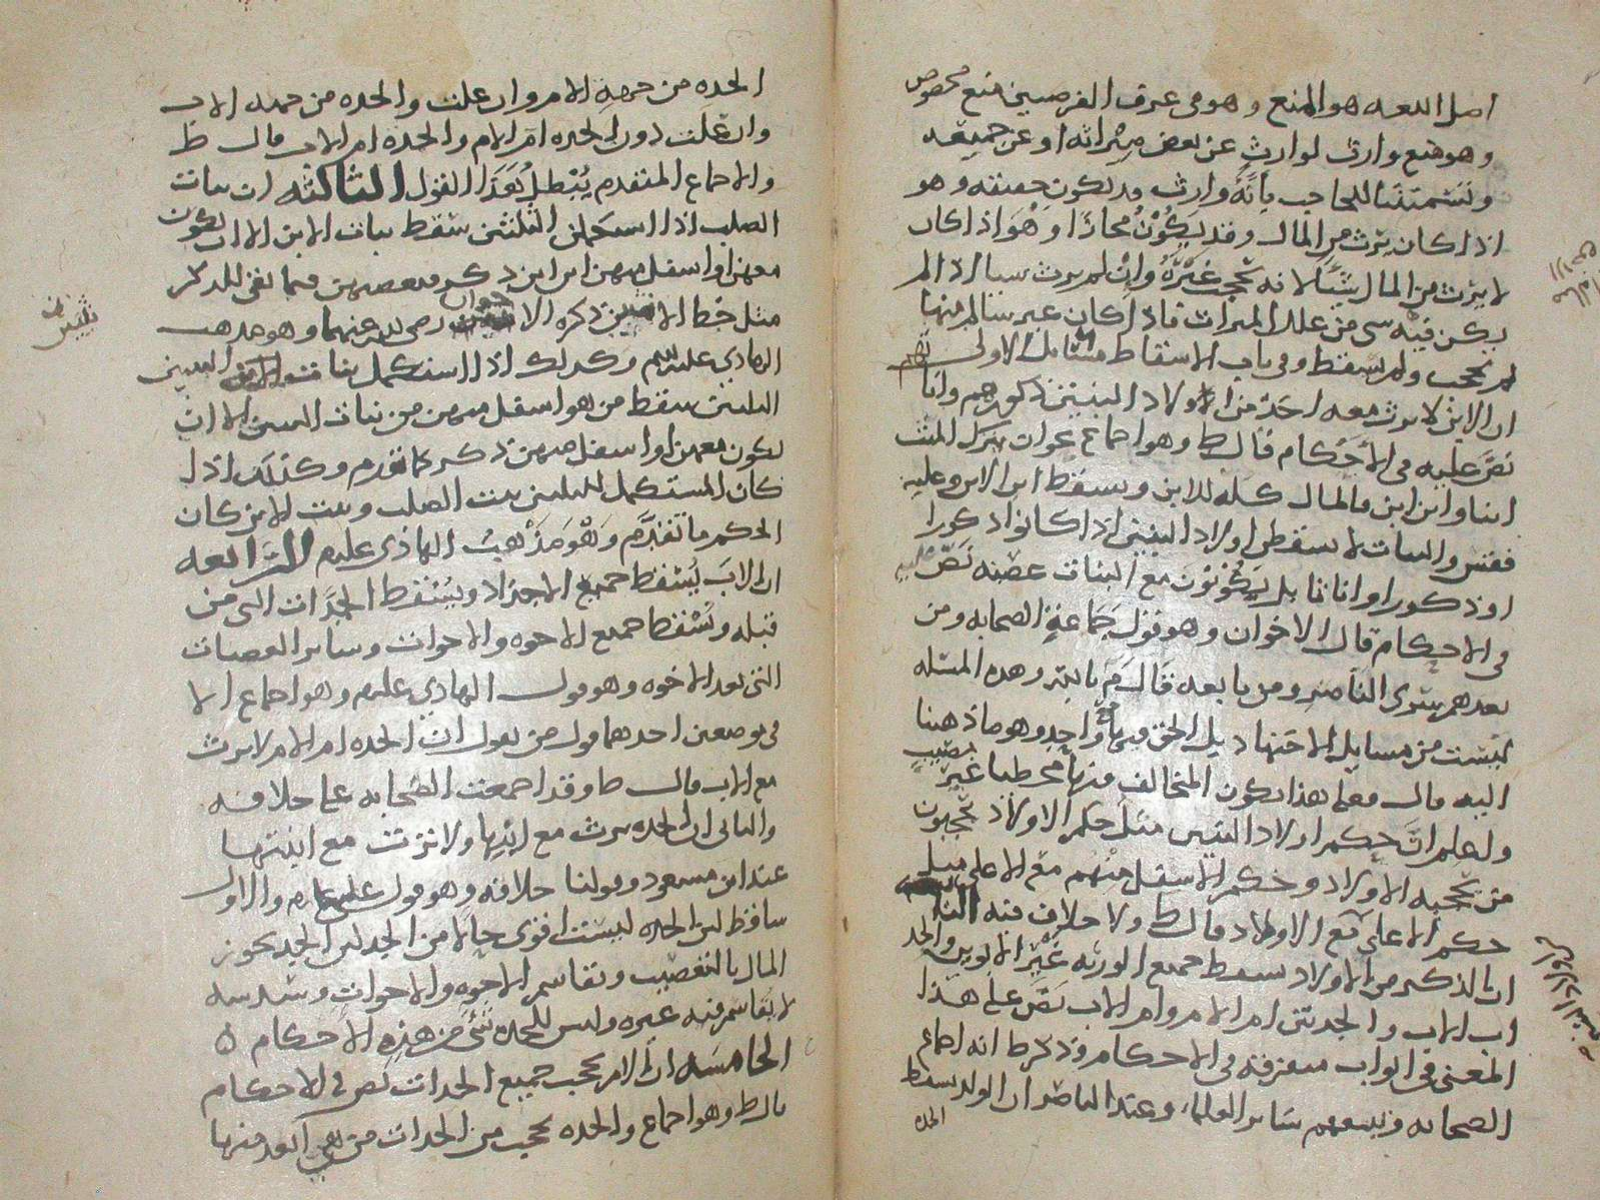 اصل اللغه هو المنع وهو في عرف الفرضيين منع مخصوص
وهو منع وارث لوارث عن بعض ميراثه او عن جميعه
وتسميتنا للحاجب بانه وارث قد يكون حقيقه وهو
اذا كان يرث من المال وقد يكون مجازا وهو اذا كان
لا يرث من المال شيئا لانه يحجب غيره وان لم يرث شيا اذ الم
يكن فيه شي من علل الميراث فاذا كان غير سالم منها
لم يحجب ولم يسقط وفي باب الاسقاط مسائل الاولى
ان الابن لا يرث معه احد من اولاد البنين ذكورهم واناثهم
نص عليه في الاحكام قال ط وهو اجماع
ابنا وابن ابن فالمال كله للابن ويسقط ابن الابن وعليه
فقس والبنات لا يسقطن اولاد البنين اذا كانوا ذكورا
او ذكورا واناثا بل يكونون مع البنات عصبه نص عليه
في الاحكام قال الاخوان وهو قول جماعة الصحابه ومن
بعدهم سوى الناصر ومن تابعه قال م بالله وهذه المسئله
ليست من مسايل الاجتهاد بل الحق فيها واحد وهو ما ذهبنا
اليه قال فعلى هذا يكون المخالف فيها مخطيا غير مصيب
وليعلم ان حكم اولاد البنين مثل حكم الاولاد يحجبون
من يحجبه الاولاد وحكم الاسفل منهم مع الاعلى مثل
حكم الاعلى مع الاولاد قال ط ولا خلاف فيه الثانيه
ان الذكر من الاولاد يسقط جميع الورثه غير الابوين والجد
اب الاب والجدتين ام الام وام الاب نص على هذا
المعنى في ابواب متفرقه في الاحكام وذكر ط انه اجماع
الصحابه وتبعهم ساير العلماء وعند الناصر ان الولد يسقط
الجده
الجده من جهه الام وان علت والجده من جهه الاب
وان علت دون الجده ام الام والجده ام الاب قال ط
والاجماع المتقدم يبطل هذا القول الثالثه ان بنات
الصلب اذا استكملن الثلثين سقط بنات الابن الا ان يكون
معهن او اسفل منهن ابن ابن ذكر فيعصبهن فيما بقي للذكر
مثل حظ الانثيين ذكره الاخوان رضي الله عنهما وهو مذهب
الهادي عليه السلم وكذلك اذا استكمل بنات البنين
الثلثين سقط من هو اسفل منهن من بنات البنين الا ان
يكون معهن او اسفل منهن ذكر كما تقدم وكذلك اذا
كان المستكمل للثلثين بنت الصلب وبنت الابن كان
الحكم ما تقدم وهو مذهب الهادي عليم الرابعه
ان الاب يسقط جميع الاجداد ويسقط الجدات التي من
قبله ويسقط جميع الاخوه والاخوات وساير العصبات
التي بعد الاخوه وهو قول الهادي عليم وهو اجماع الا
في موضعين احدهما قول من يقول ان الجده ام الام لا يرث
مع الاب قال ط وقد اجمعت الصحابه على خلافه
والثاني ان الجده ترث مع ابيها ولا ترث مع ابنتها
عند ابن مسعود وقولنا خلافه وهو قول علي عليم والاول
ساقط لان الجده ليست اقوى حالا من الجد لان الجد يحوز
المال بالتعصيب ويقاسم الاخوه والاخوات وسدسه
لا يقاسم فيه غيره وليس للجده شي من هذه الاحكام ٥
الخامسه ان الام يحجب جميع الجدات نص في الاحكام
قال ط وهو اجماع والجده تحجب من الجدات من هي ابعد منها